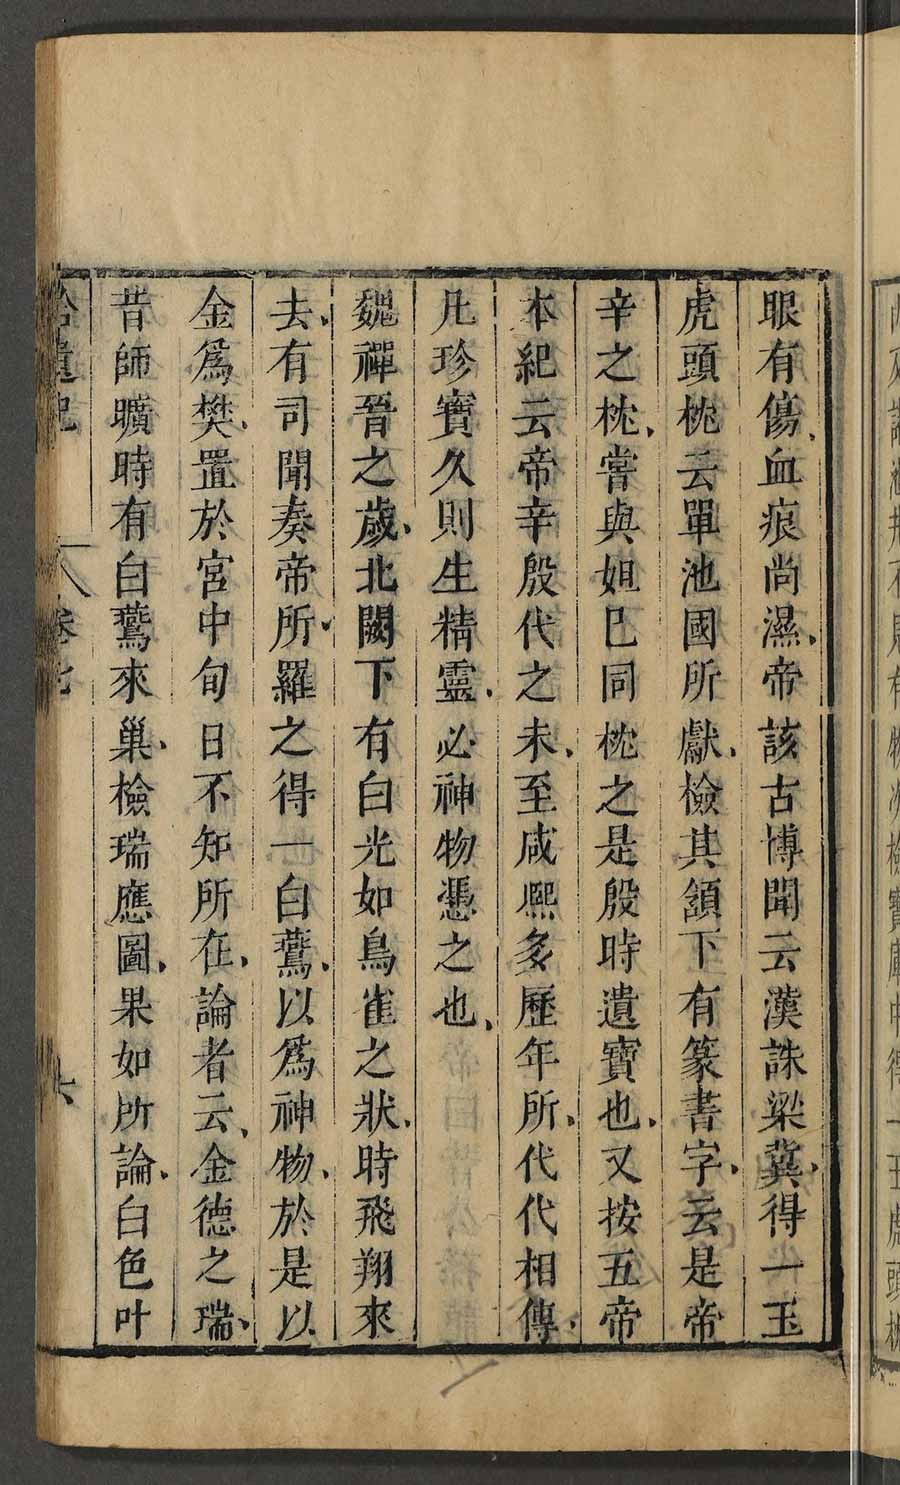 眼有傷、血痕尚濕、帝該古博聞云漢誅梁冀、得一玉
虎頭枕云單池國所獻、檢其頷下有篆書字、云是帝
辛之枕、嘗與妲己同枕之是殷時遺寶也、又按五帝
本紀云帝辛殷代之末、至咸熙多歷年所、代代相傳、
凡珍寶久則生精靈、必神物憑之也、
魏禪晉之歲、北闕下有白光如鳥雀之狀、時飛翔來
去、有司聞奏帝所、羅之得一白鷰、以爲神物、於是以
金爲樊、置於宮中旬日不知所在、論者云、金德之瑞、
昔師曠時有白鷰來巢、檢瑞應圖、果如所論、白色叶
拾遺記 卷七 六